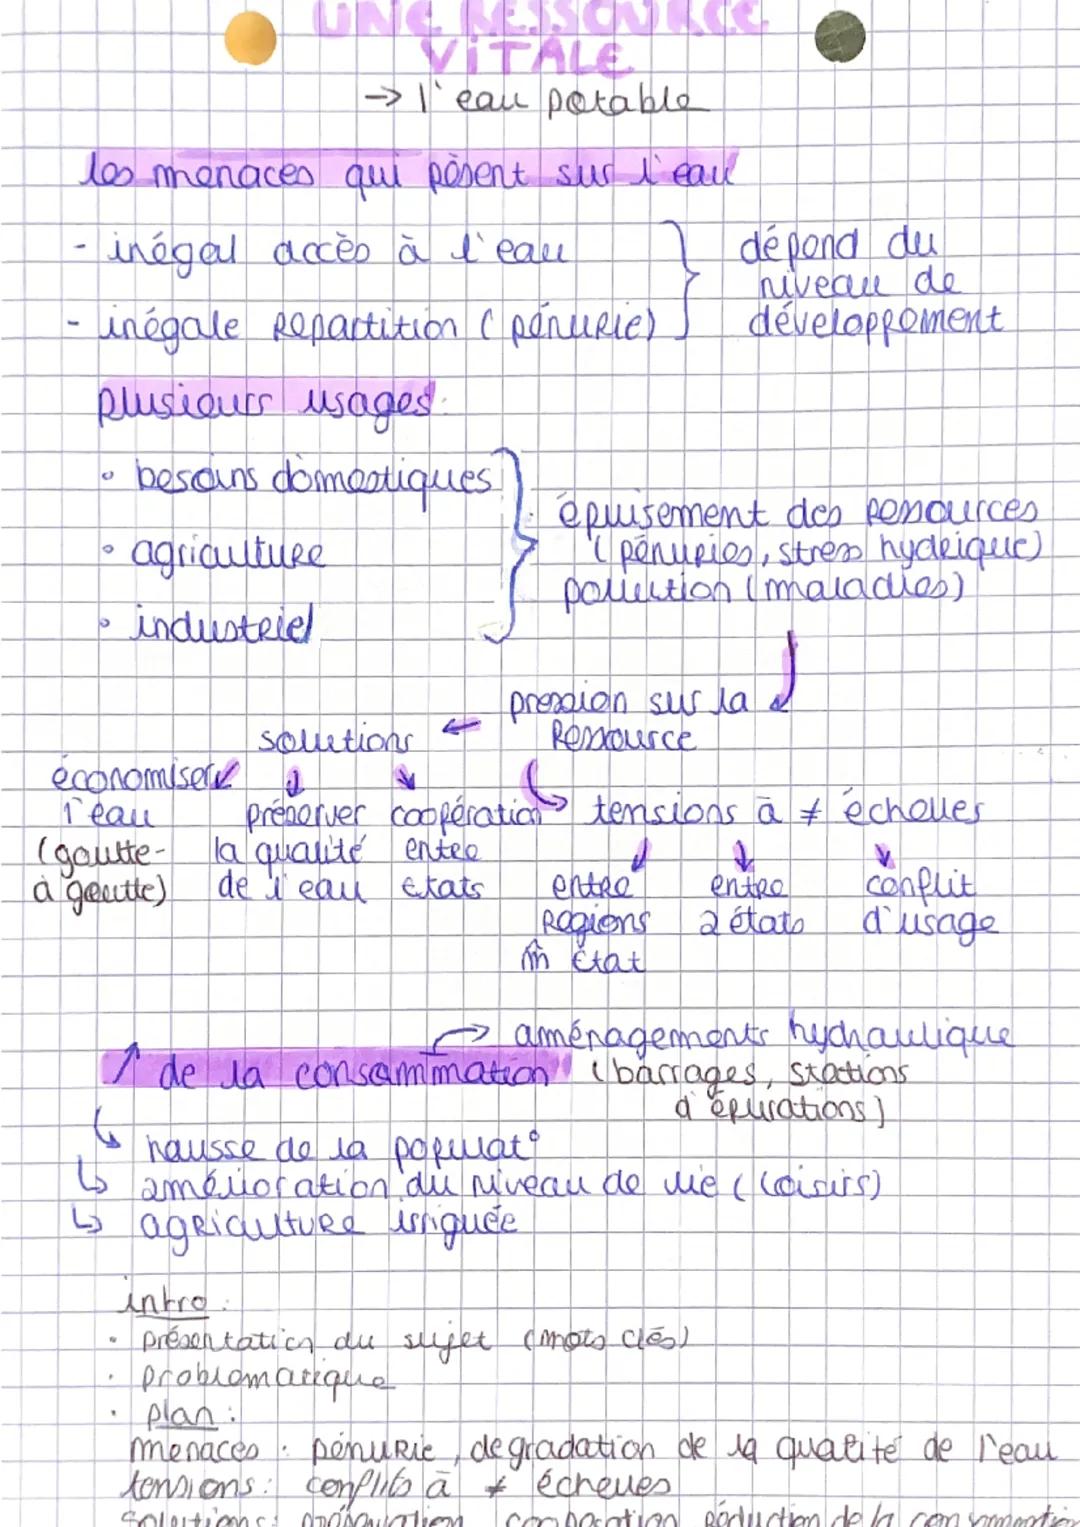 UNE RESSOURCE
VITALE
→ l'eau potable
les menaces qui pèsent sur l'eau
- inégal accès à l'eau
- inégale repartition (pénurie)
dépend du
niveau de
développement
plusieurs usages:
• besoins domestiques
• agriculture
• industriel
épuisement des ressources
(pénuries, stress hydrique)
pollution (maladies)
pression sur la
Ressource
solutions ←
économiser
l'eau
(goutte-
à goutte)
préserver
la qualité
de l'eau
coopération
entre
états
tensions à ≠ échelles
entre
Régions
m̂ état
entre
2 états
conflit
d'usage
→ aménagements hydraulique
(barrages, stations
d'épurations)
↑ de la consommation
↳ hausse de la populat°
↳ amélioration du niveau de vie (loisirs)
↳ agriculture irriguée
intro :
• présentation du sujet (mots clés)
• problematique
• plan :
menaces : pénurie, degradation de la qualité de l'eau
tensions : conflits à ≠ échelles
solutions : préservation, coopération, réduction de la consommation